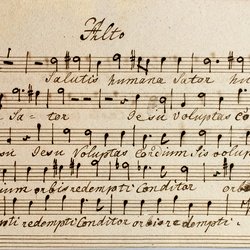 Alto
Salutis humanæ Sator hu
Sa= tor Jesu Voluptas Co
su Jesu Voluptas Cordium Sis volup
ium orbis redempti Conditor orbi
pti redempti Conditor orbis redempti.